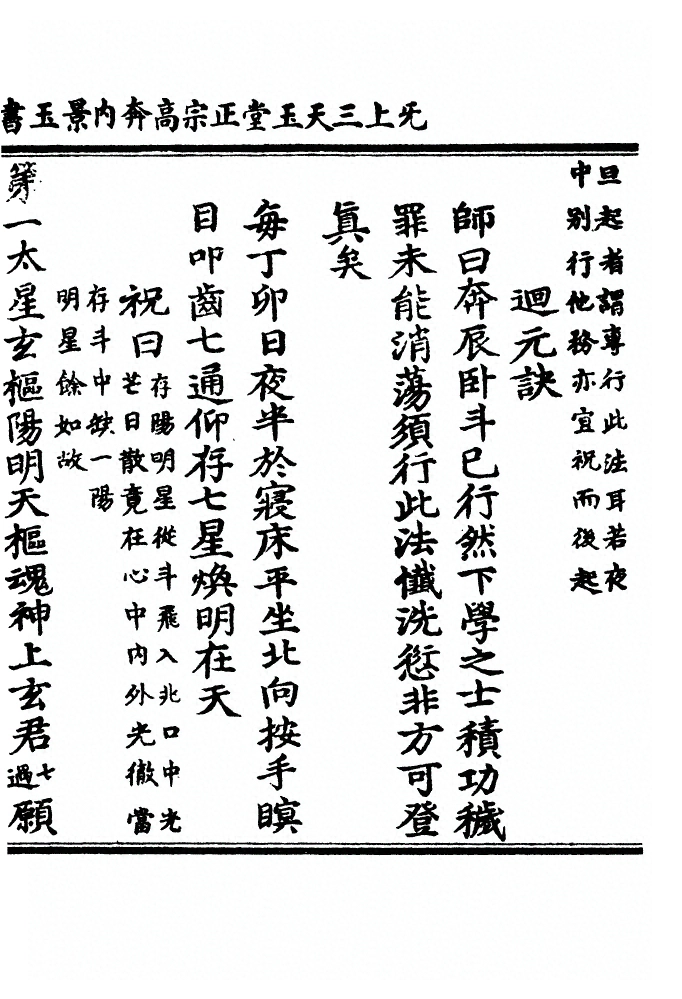 旡上三天玉堂正宗高奔内景玉書
旦起者謂專行此法耳若夜
中别行他務亦宜祝而後起
迴元訣
師曰奔辰卧斗已行然下學之士積功穢
罪未能消蕩須行此法懺洗愆非方可登
真矣
每丁卯日夜半於寢床平坐北向按手瞑
目叩齒七通仰存七星煥明在天
祝曰存陽明星從斗飛入兆口中光
芒日散竟在心中内外光徹當
存斗中缺一陽
明星餘如故
第一太星玄樞陽明天樞魂神上玄君七遍願